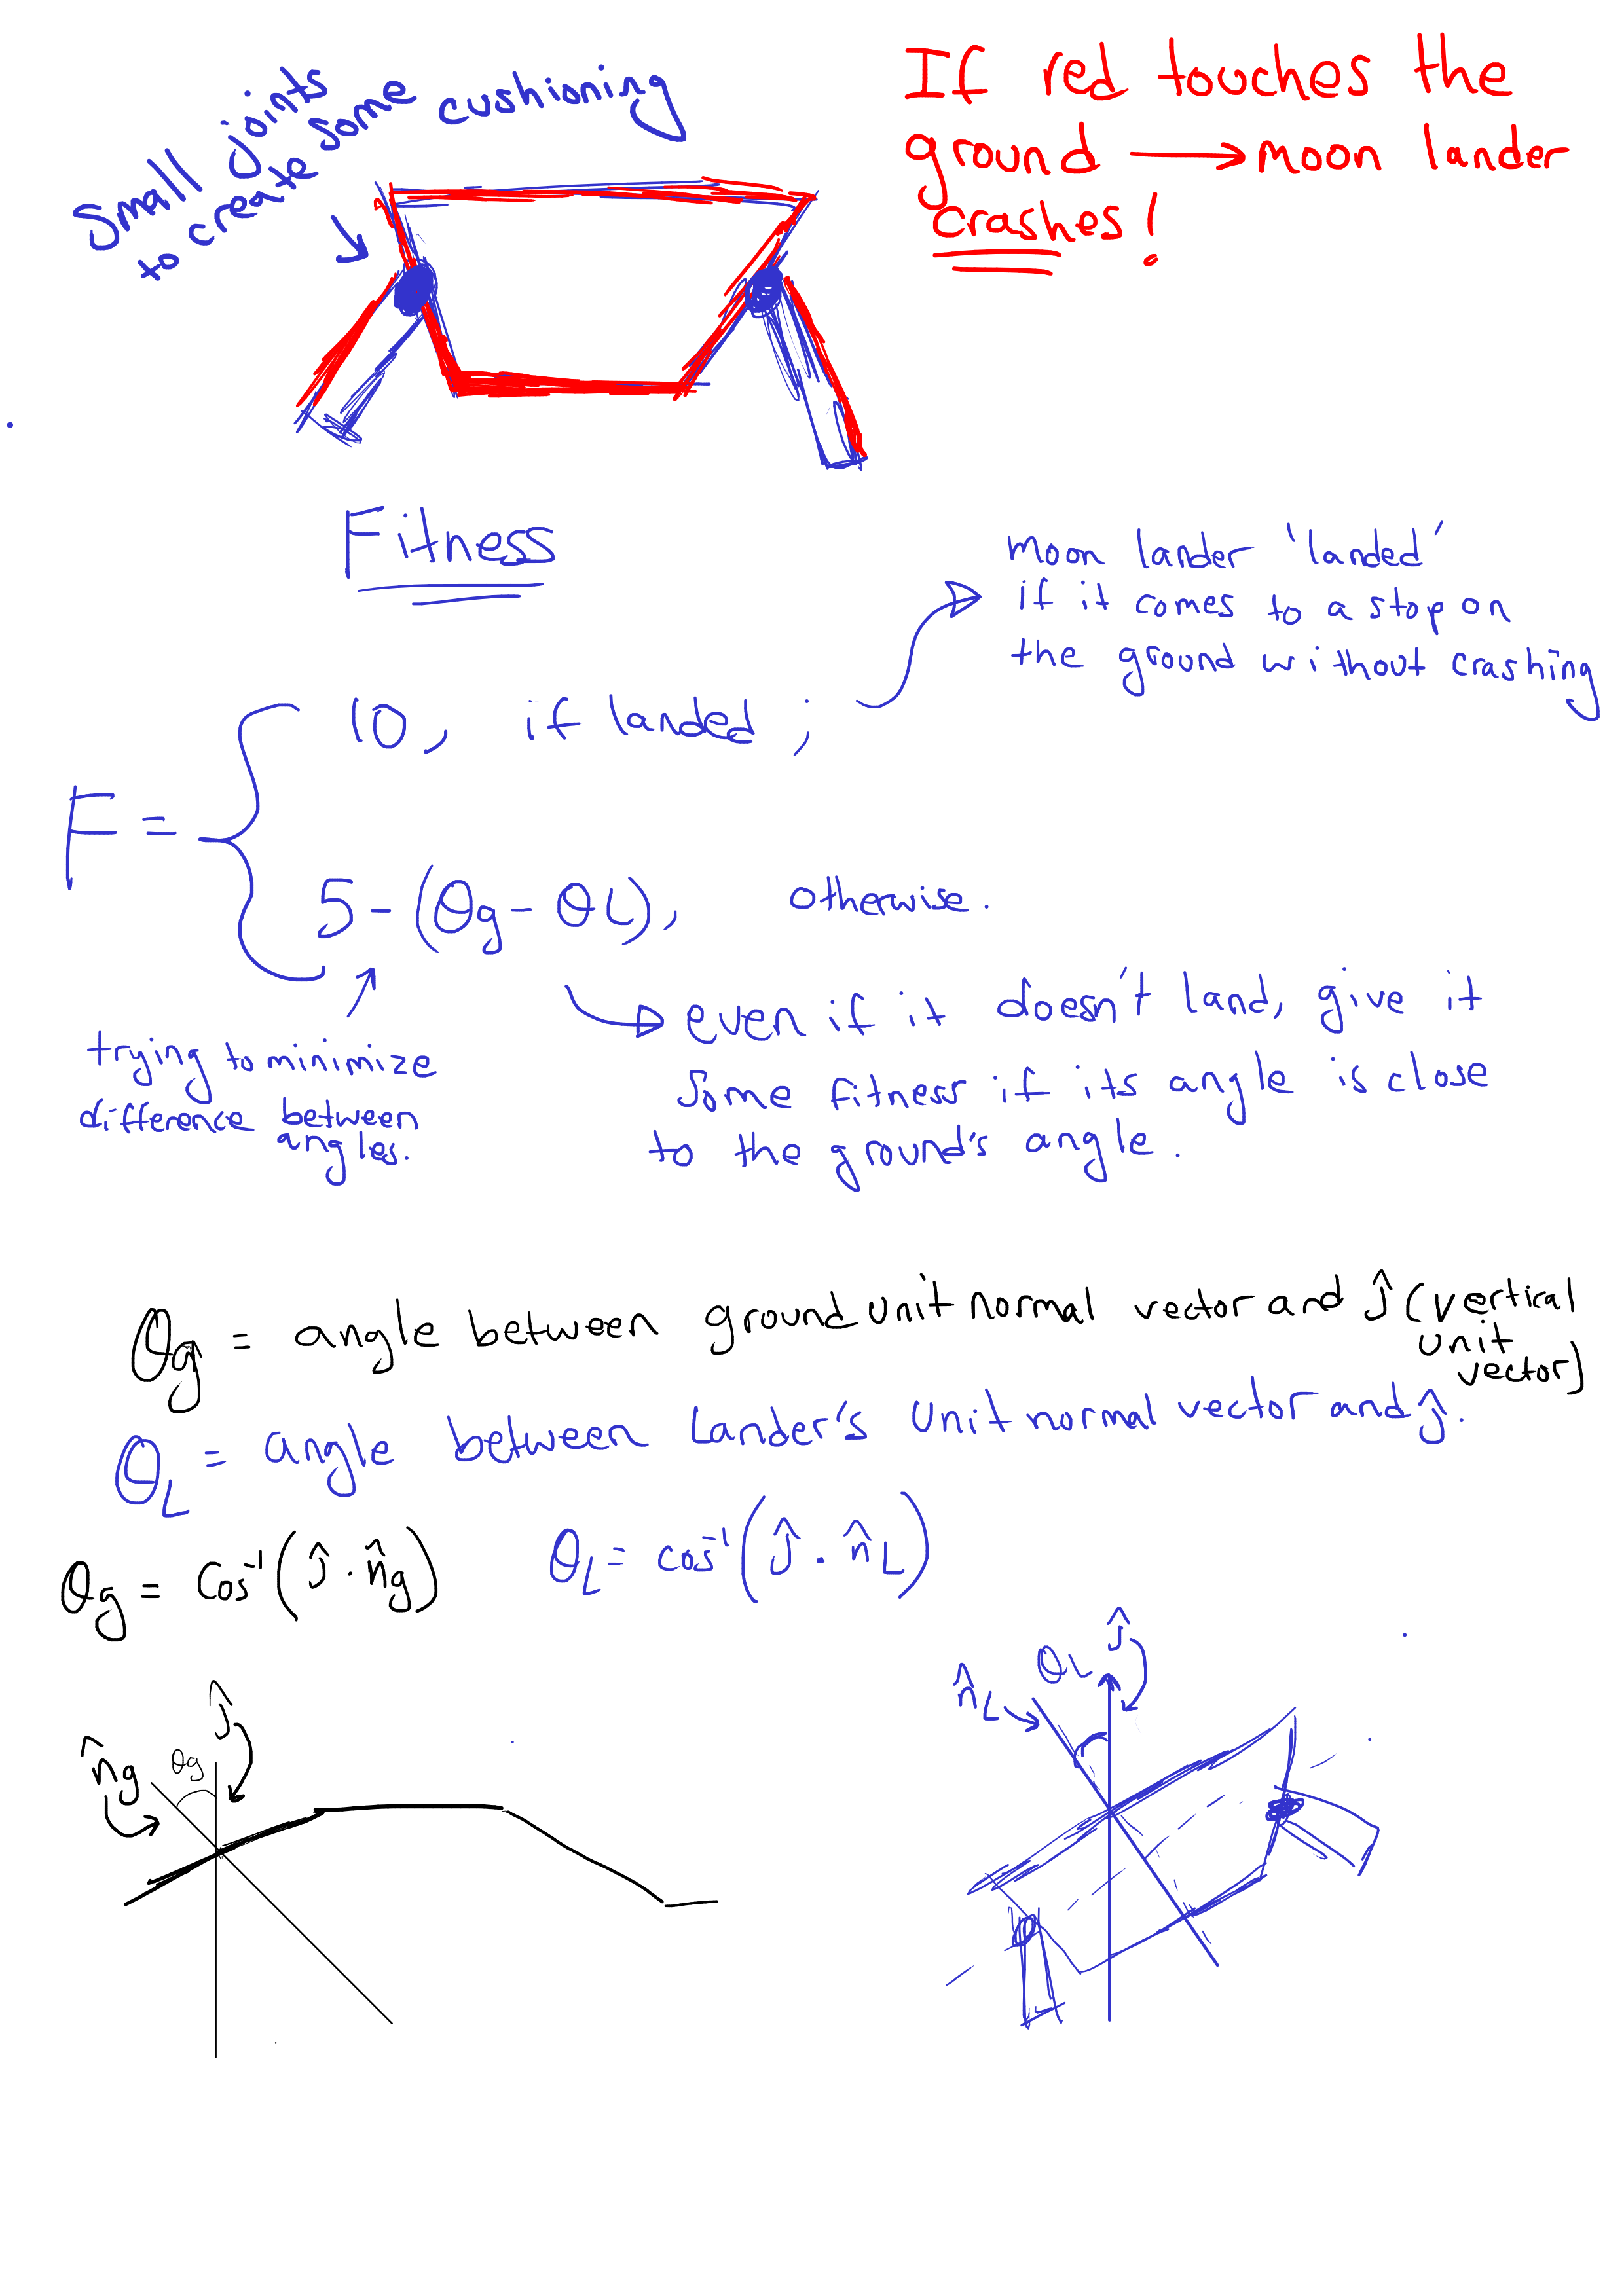 Small joints
to create some cushioning
If red touches the
ground → moon lander
crashes!
Fitness
moon lander 'landed'
if it comes to a stop on
the ground without crashing
F =
10, if landed ;
5 - (θg - θL), otherwise.
trying to minimize
difference between
angles.
even if it doesn't land, give it
Some fitness if its angle is close
to the ground's angle.
θg = angle between ground unit normal vector and ĵ (vertical
unit
vector)
θL = angle between Lander's unit normal vector and ĵ.
θg = cos⁻¹(ĵ · n̂g)
θL = cos⁻¹(ĵ · n̂L)
ĵ
n̂g
θg
ĵ
θL
n̂L